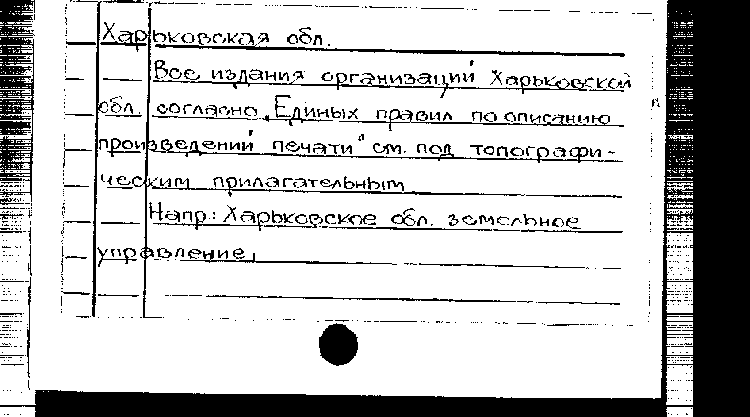 Харьковская обл.
Все издания организаций Харьковской
обл. согласно „Единых правил по описанию
произведений печати" см. под топографи-
ческим прилагательным
Напр.: Харьковское обл. земельное
управление,